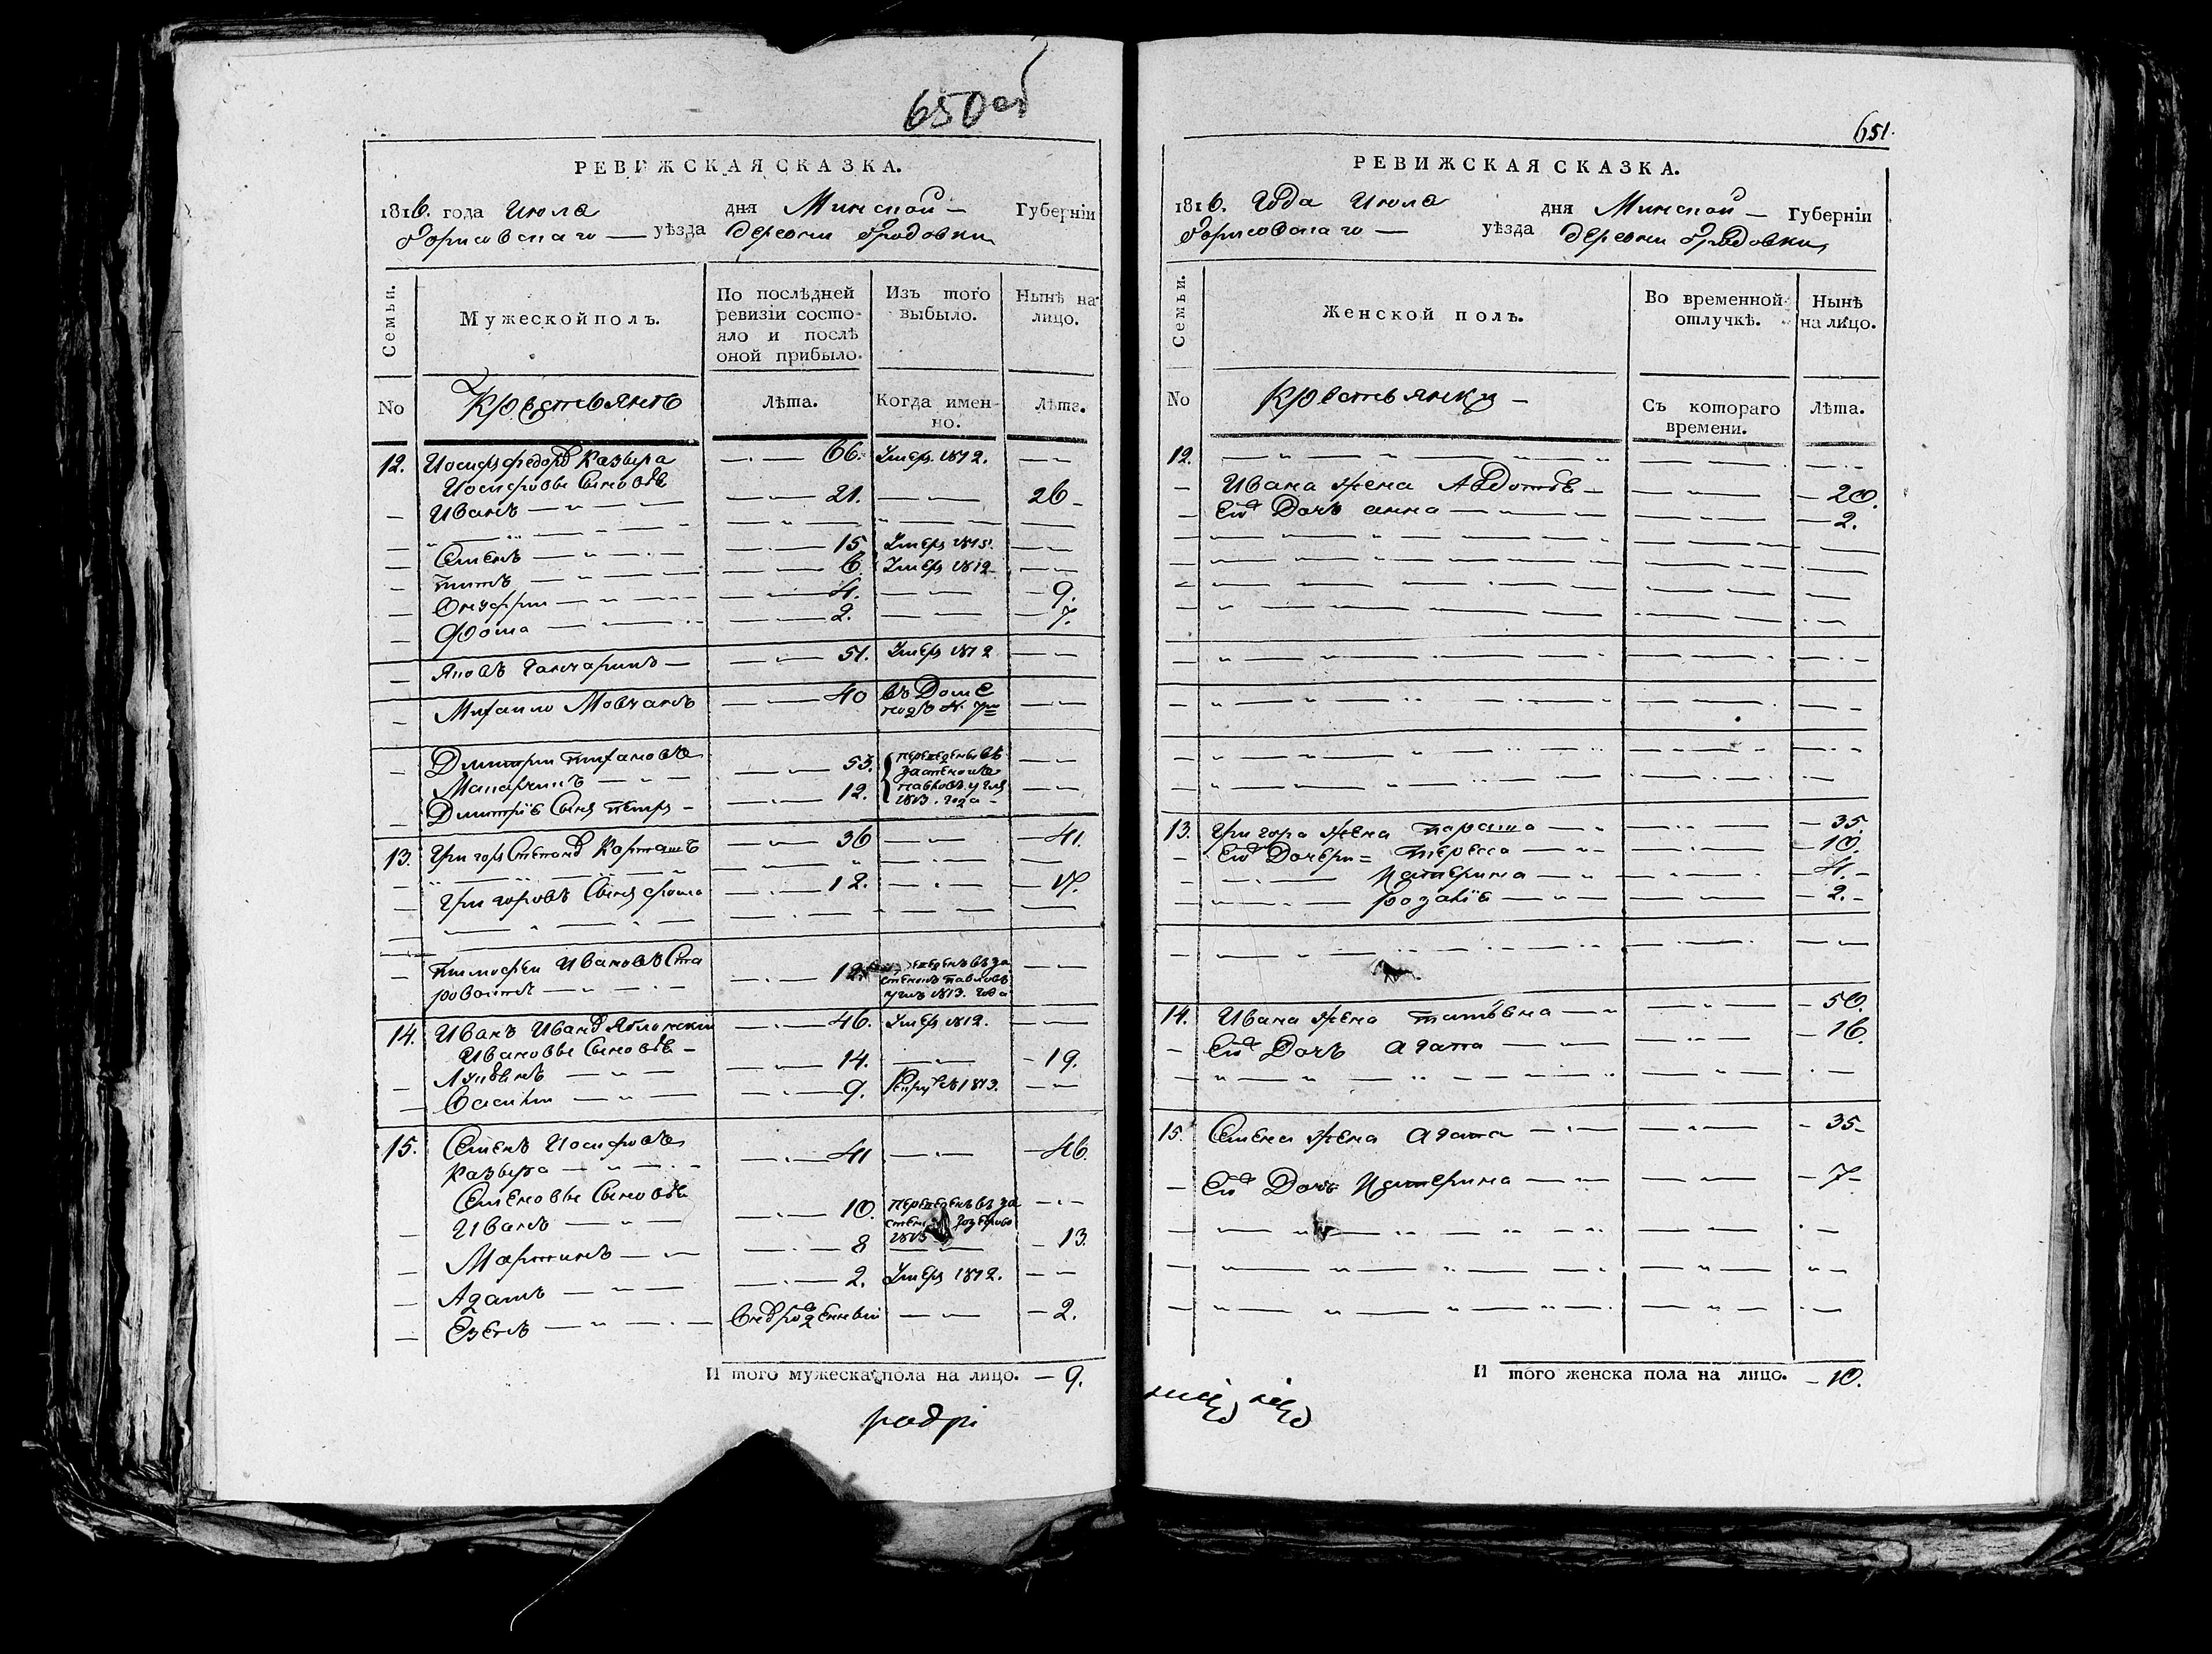 650об
РЕВИЖСКАЯ СКАЗКА.
1816. года Июля дня Минской Губерніи
Борисовскаго уѣзда деревни Бродовки
Семьи.
Мужеской полъ.
По послѣдней ревизіи состояло и послѣ оной прибыло.
Изъ того выбыло.
Нынѣ на лицо.
No
Крестьянѣ
Лѣта.
Когда именно.
Лѣта.
12. Иосифъ Федор. Казыра 66. Умеръ 1812.
Иосифовы Сыновья
Иванъ 21. 26
Семенъ 15 Умеръ 1815.
Титъ 6 Умеръ 1812
Онуфри 4. 9.
Фома 2. 7.
Яковъ Ганчаринъ 51. Умеръ 1812
Михайло Мовчанъ 40 въ Доме подъ №. 7м
Дмитри Тихановъ 53. переведены въ
застенокъ
1813. года
Дмитрія Сынъ Петръ 12.
13. Григоръ Степан. Карташъ 36 41.
Григоровъ Сынъ Фома 12. 17.
Тимофеи Ивановъ Ста
ровоитъ 12. переведенъ въ за
стенокъ
1813. года
14. Иванъ Иван. Яблонскій 46. Умеръ 1812.
Ивановы Сыновья
Лукьянъ 14. 19.
Васили 9. Рекрут. въ 1813.
15. Семенъ Иосифовъ
Казыра 41 46.
Семеновы Сыновья
Иванъ 10. переведенъ въ за
1813
Мартинъ 8 13.
Адамъ 2. Умеръ 1812.
Новорожденный 2.
И того мужеска пола на лицо. 9.
651.
РЕВИЖСКАЯ СКАЗКА.
1816. Года Июля дня Минской Губерніи
Борисовскаго уѣзда деревни Бродовки
Семьи.
Женской полъ.
Во временной отлучкѣ.
Нынѣ на лицо.
No
Крестьянки
Съ котораго времени.
Лѣта.
12.
Ивана Жена Авдотья 20.
Его Дочь Анна 2.
13. Григора Жена Параша 35.
Его Дочери Тереса 10.
Катерина 4.
Розалія 2.
14. Ивана Жена Татьяна 50.
Его Дочь Агата 16.
15. Семена Жена Агата 35
Его Дочь Катерина 7
И того женска пола на лицо. 10.